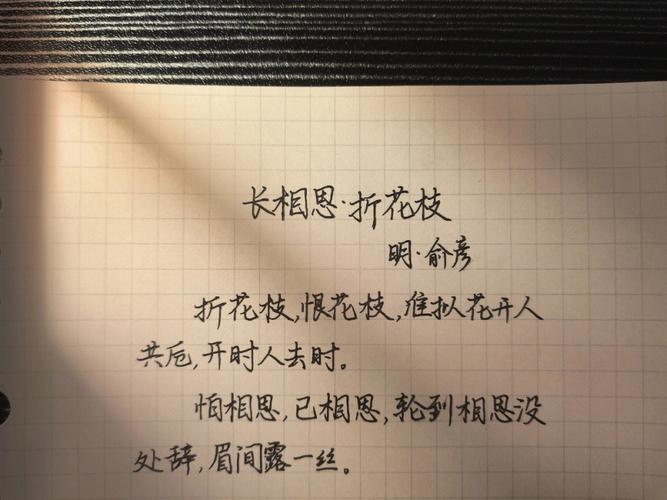 长相思·折花枝
明·俞彦
折花枝,恨花枝,准拟花开人
共卮,开时人去时。
怕相思,已相思,轮到相思没
处辞,眉间露一丝。